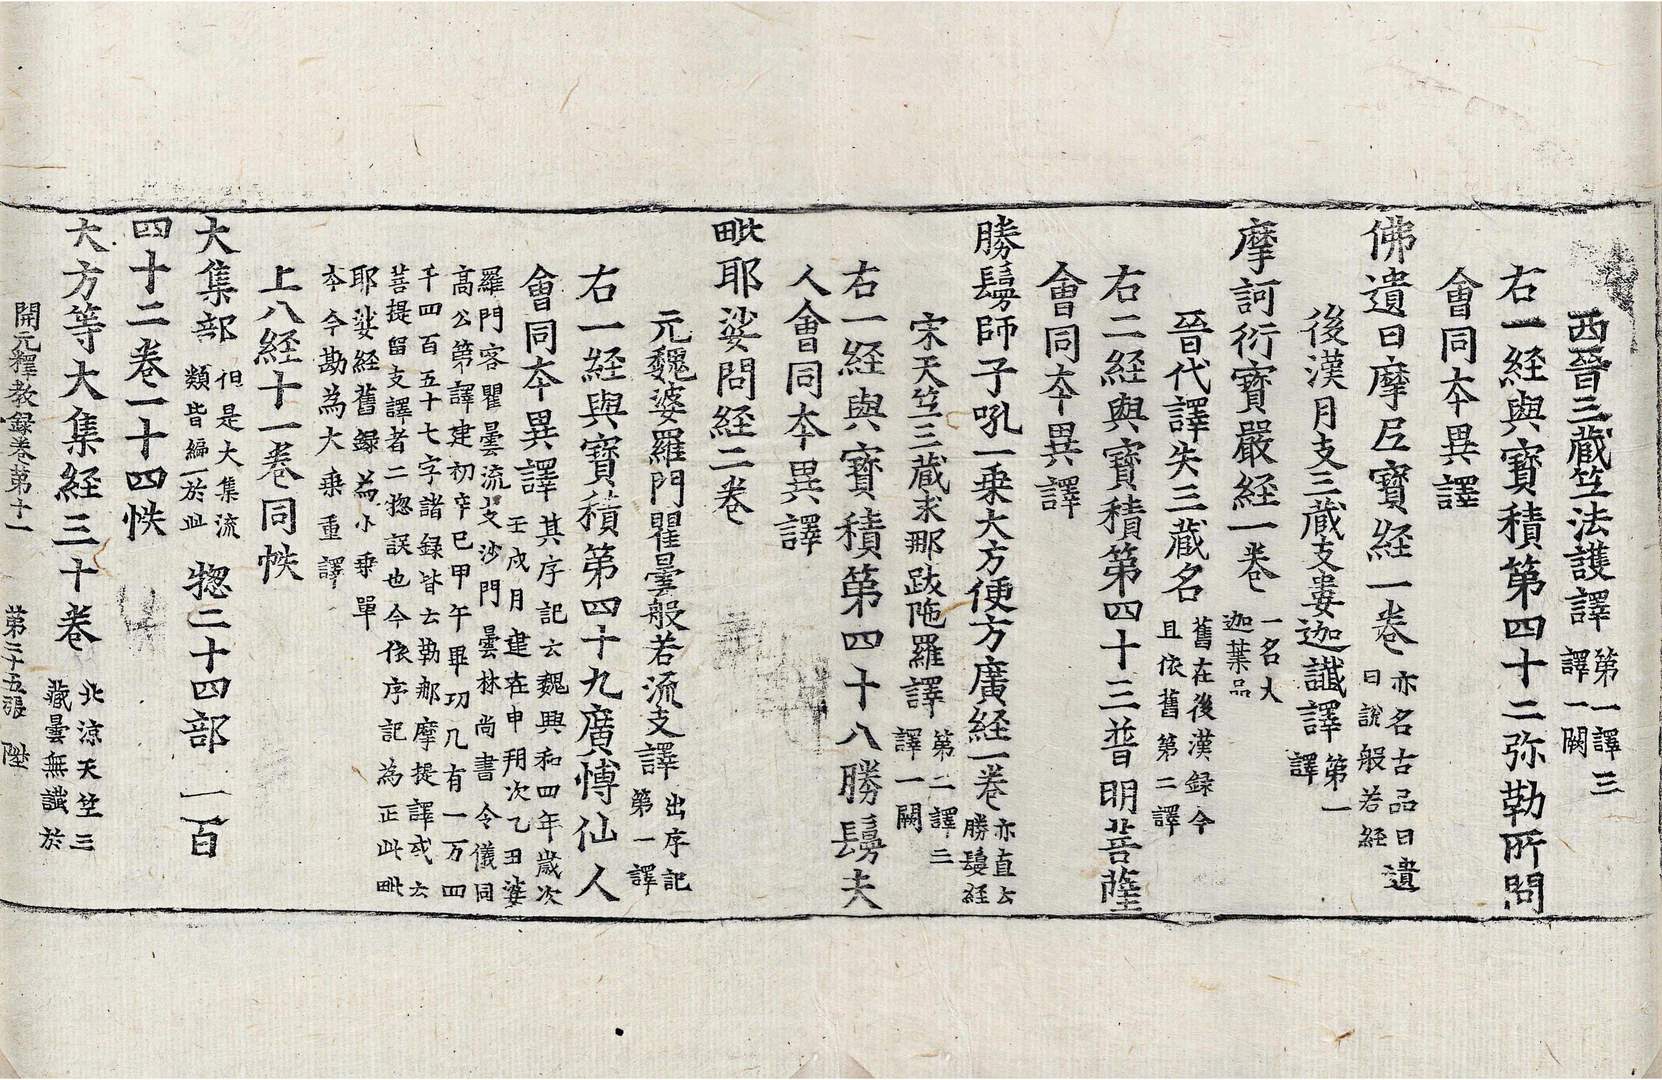 西晉三藏竺法護譯第一譯三
譯一闕
右一経與寶積第四十二弥勒所問
會同夲異譯
佛遺日摩尼寶経一卷亦名古品曰遺
日說般若経
後漢月支三藏支婁迦讖譯第一
譯
摩訶衍寶嚴経一卷一名大
迦葉品
晉代譯失三藏名舊在後漢録今
且依舊第二譯
右二経與寶積第四十三普明菩薩
會同夲異譯
勝鬘師子吼一乗大方便方廣経一卷亦直云
勝鬘経
宋天竺三藏求那跋陁羅譯第二譯三
譯一闕
右一経與寶積第四十八勝鬘夫
人會同夲異譯
毗耶娑問経二卷
元魏婆羅門瞿曇般若流支譯出序記
第一譯
右一経與寶積第四十九廣愽仙人
會同夲異譯其序記云魏興和四年歲次
壬戌月建在申朔次乙丑婆
羅門客瞿曇流支沙門曇林尚書令儀同
髙公第譯建初辛巳甲午畢功凡有一万四
千四百五十七字諸録皆云勒那摩提譯或云
菩提留支譯者二揔誤也今依序記為正此毗
耶娑経舊録為小乗單
夲今勘為大乗重譯
上八経十一卷同帙
大集部但是大集流
類皆編於此揔二十四部一百
四十二卷一十四帙
大方等大集経三十卷北涼天竺三
藏曇無讖於
開元釋教録卷第十一 第二十五張 陛